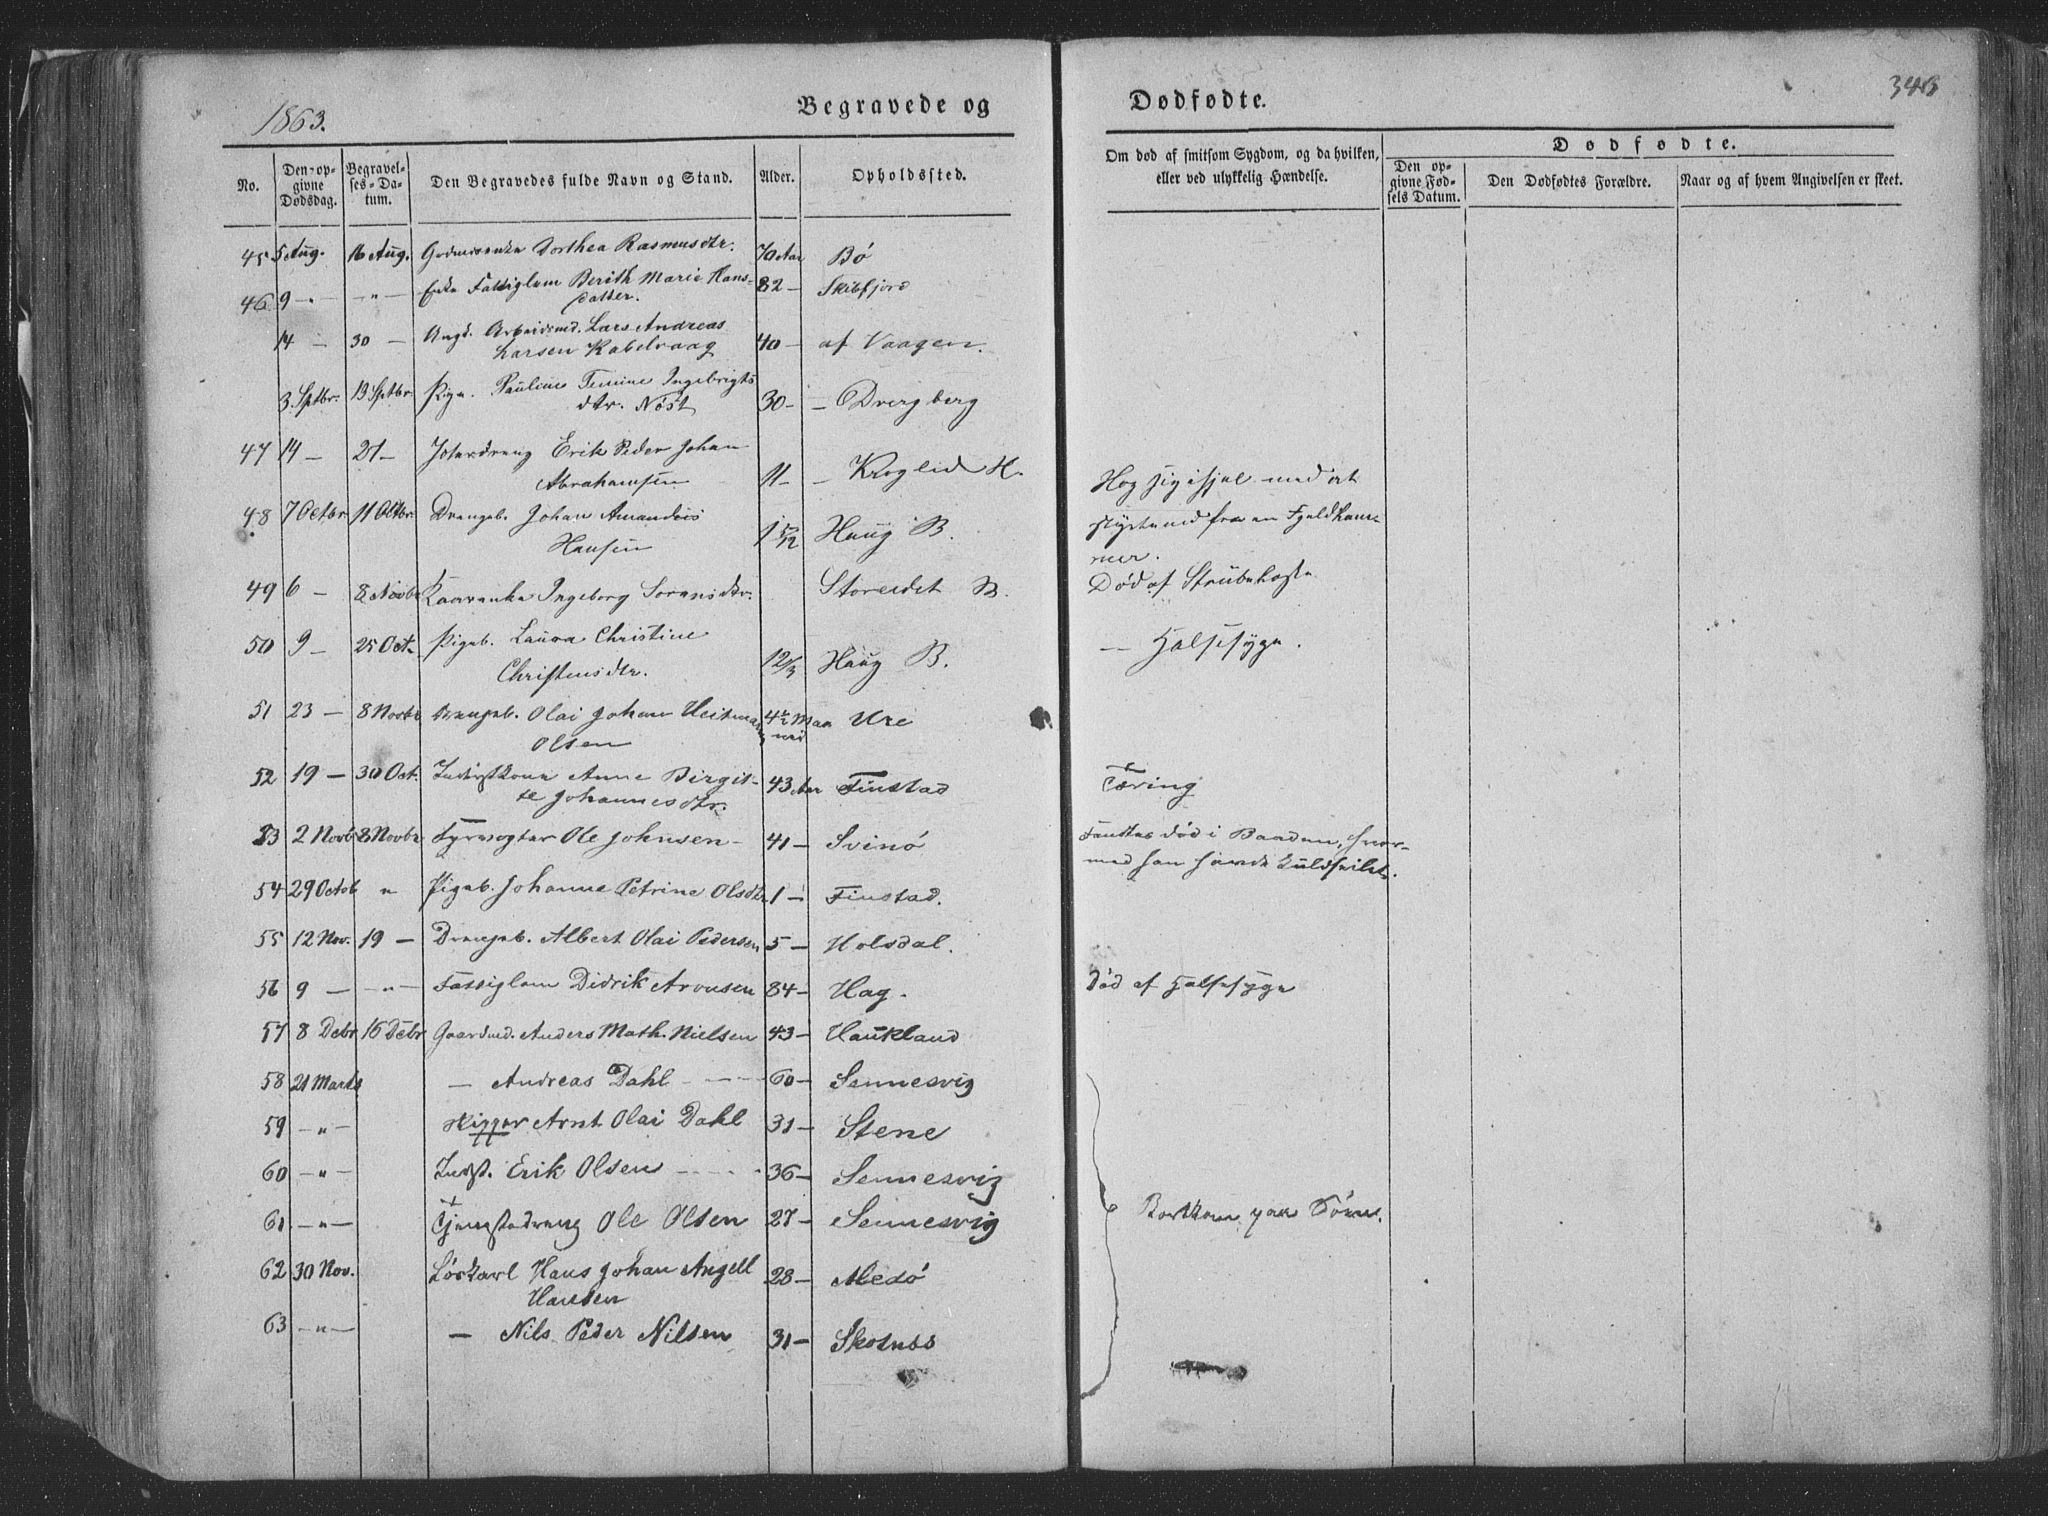 1863.
Begravede og
Dødfødte.
346
No.
Den opgivne Dødsdag.
Begravelses-Datum.
Den Begravedes fulde Navn og Stand.
Alder.
Opholdssted.
Om død af smitsom Sygdom, og da hvilken, eller ved ulykkelig Hændelse.
Dødfødte.
Den opgivne Fødsels Datum.
Den Dødfødtes Forældre.
Naar og af hvem Angivelsen er skeet.
45 5 Aug. 16 Aug. Dorthea Rasmusdtr. 70 Aar Bø
46 9 -"- -"- Enke Fattiglem Berith Marie Hans-
datter. 82 - Skibfjord
14 - 30 - Arbeidsmd. Lars Andreas
Larsen Kabelvaag 40 - af Vaagen.
3 Sptbr. 13 Sptbr. Pige. Pauline Ingebrigts
dtr. Nöst 30 - - Dverberg
47 14 - 27 - Erik Peder Johan
Abrahamsen 11 - - Kroglid H.
48 7 Octbr. 11 Octbr. Drengeb. Johan Amandus
Hansen 1 5/12 Haug B.
med at
styrte ned fra en Fjeldham-
mer.
49 6 - 8 Novbr Ingeborg Sørensdtr. Storeidet B. Død af Strubehoste
50 9 - 25 Oct. Pigeb. Laura Christine
Christensdtr. Haug B. — Halssyge.
51 23 - 8 Novbr Drengeb. Olai Johan
Olsen Ure
52 19 - 30 Oct. Inderstkone Anne Birgit-
te Johannesdtr. 43 Aar Finstad Tæring
53 2 Novb 8 Novbr Fyrvogter Ole Johnsen - 41 - Svinö død i Baaden, hvor-
med han havde Kuldseilet.
54 29 Octob " Pigeb. Johanna Petrine Olsdtr 1 - Finstad.
55 12 Nov. 19 - Drengeb. Albert Olai Pedersen 5 - Holsdal.
56 9 - -"- Fattiglem Didrik Aronsen 84 - Hag. Død af Halssyge
57 8 Debr 16 Debr Gaardmd. Anders Math. Nielsen 43 - Haukland
58 21 Marts — Andreas Dahl 60 - Sennesvig
59 -"- Arnt Olai Dahl 31 - Stene
60 -"- Indst. Erik Olsen 36 - Sennesvig
61 -"- Tjenestedreng Ole Olsen 27 - Sennesvig Bortkom paa Søen.
62 30 Nov. Löskarl Hans Johan Angell
Hansen 28 - Medö
63 -"- — Nils Peder Nilsen 31 - Skotnes